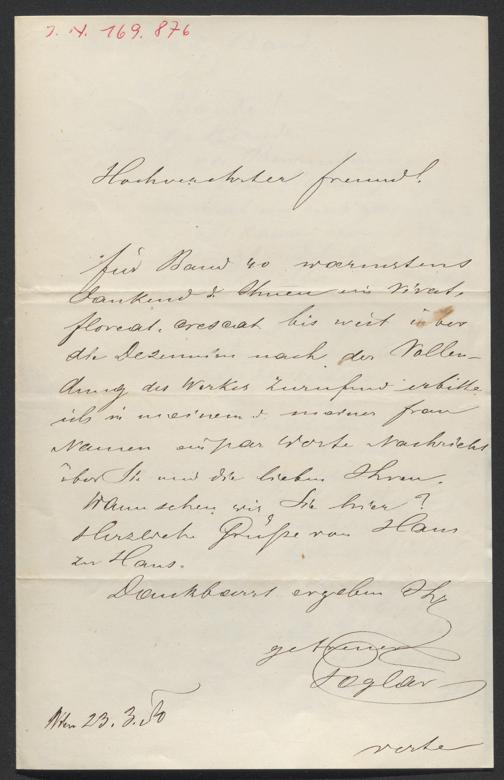 I. N. 169.876
Hochverehrter Freund!
für Band 40 wärmstens
dankend & Ihnen ein Vivat,
floreat, crescat bis weit über
die Dezennien nach der Vollen-
dung des Werkes zurufend erbitte
ich in meinem & meiner Frau
Namen ein par Worte Nachricht
über Sie und die lieben Ihren.
Wann sehen wir Sie hier?
Herzliche Grüße von Haus
zu Haus.
Dankbarst ergeben Ihr
getreuer
Foglar
Wien 23. 3. 80
verte